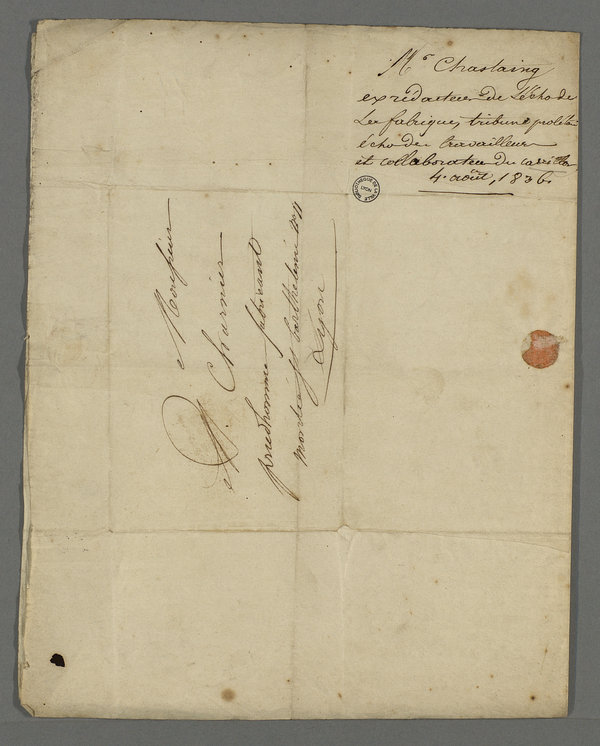 Mr Chastaing
ex rédacteur de L'écho de
La fabrique, tribune prolét.
écho des travailleurs
et collaborateur du
4. août, 1836.
BIBLIOTHEQUE DE LA VILLE
LYON
Monsieur
Charnier
prudhomme fabricant
montée St Barthélemi No 11
Lyon